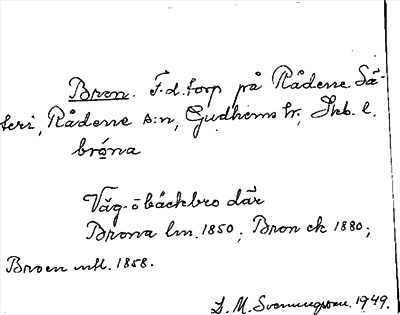 Bron. F.d. torp på Rådene Sä-
teri, Rådene s:n, Gudhems hr, Skb. l.
bróna
Väg- o bäckbro där
Brona lm. 1850; Bron ek 1880;
Broen mtl. 1858.
D. M. Svenungsson. 1949.